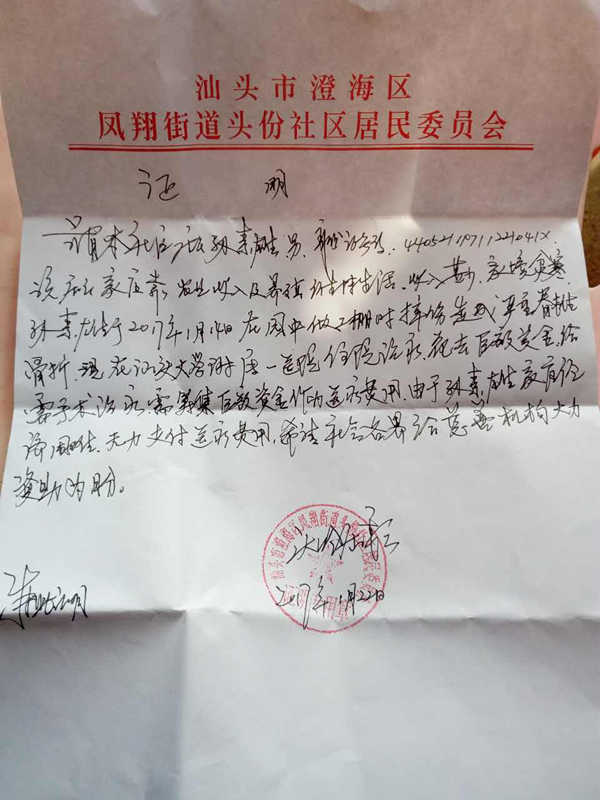 汕头市澄海区
凤翔街道头份社区居民委员会
证 明
兹有本社区居民孙素雄男,身份证号码:44052119711221041X
该居民家庭靠 收入及养猪 维持生活,收入甚少,家境贫寒,
孙素雄于2017年1月14日在园中做工棚时摔伤造成严重脊椎
骨折,现在汕头大学附属一医院住院治疗,花去巨额资金,给
需手术治疗,需筹集巨额资金作为医疗费用,由于孙素雄家庭经
济困难,无力支付医疗费用,希望社会各界 慈善机构大力
资助为盼。
2017年1月22日
情况证明